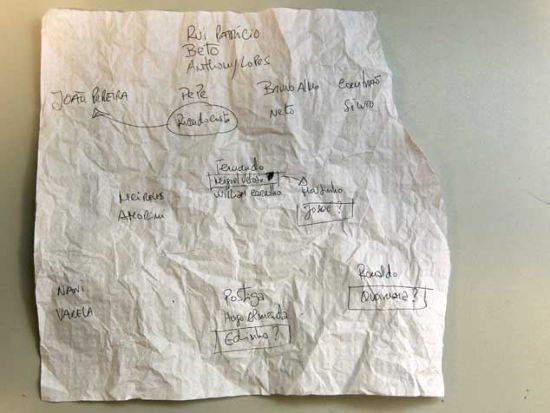 Rui Patrício
Beto
Anthony Lopes
João Pereira
Pepe
Bruno Alves
Coentrão
Ricardo Costa
Neto
Silvio
Fernando
Miguel Veloso
William Carvalho
Moutinho
Josué?
Meireles
Amorim
Nani
Varela
Postiga
Hugo Almeida
Edinho?
Ronaldo
Quaresma?